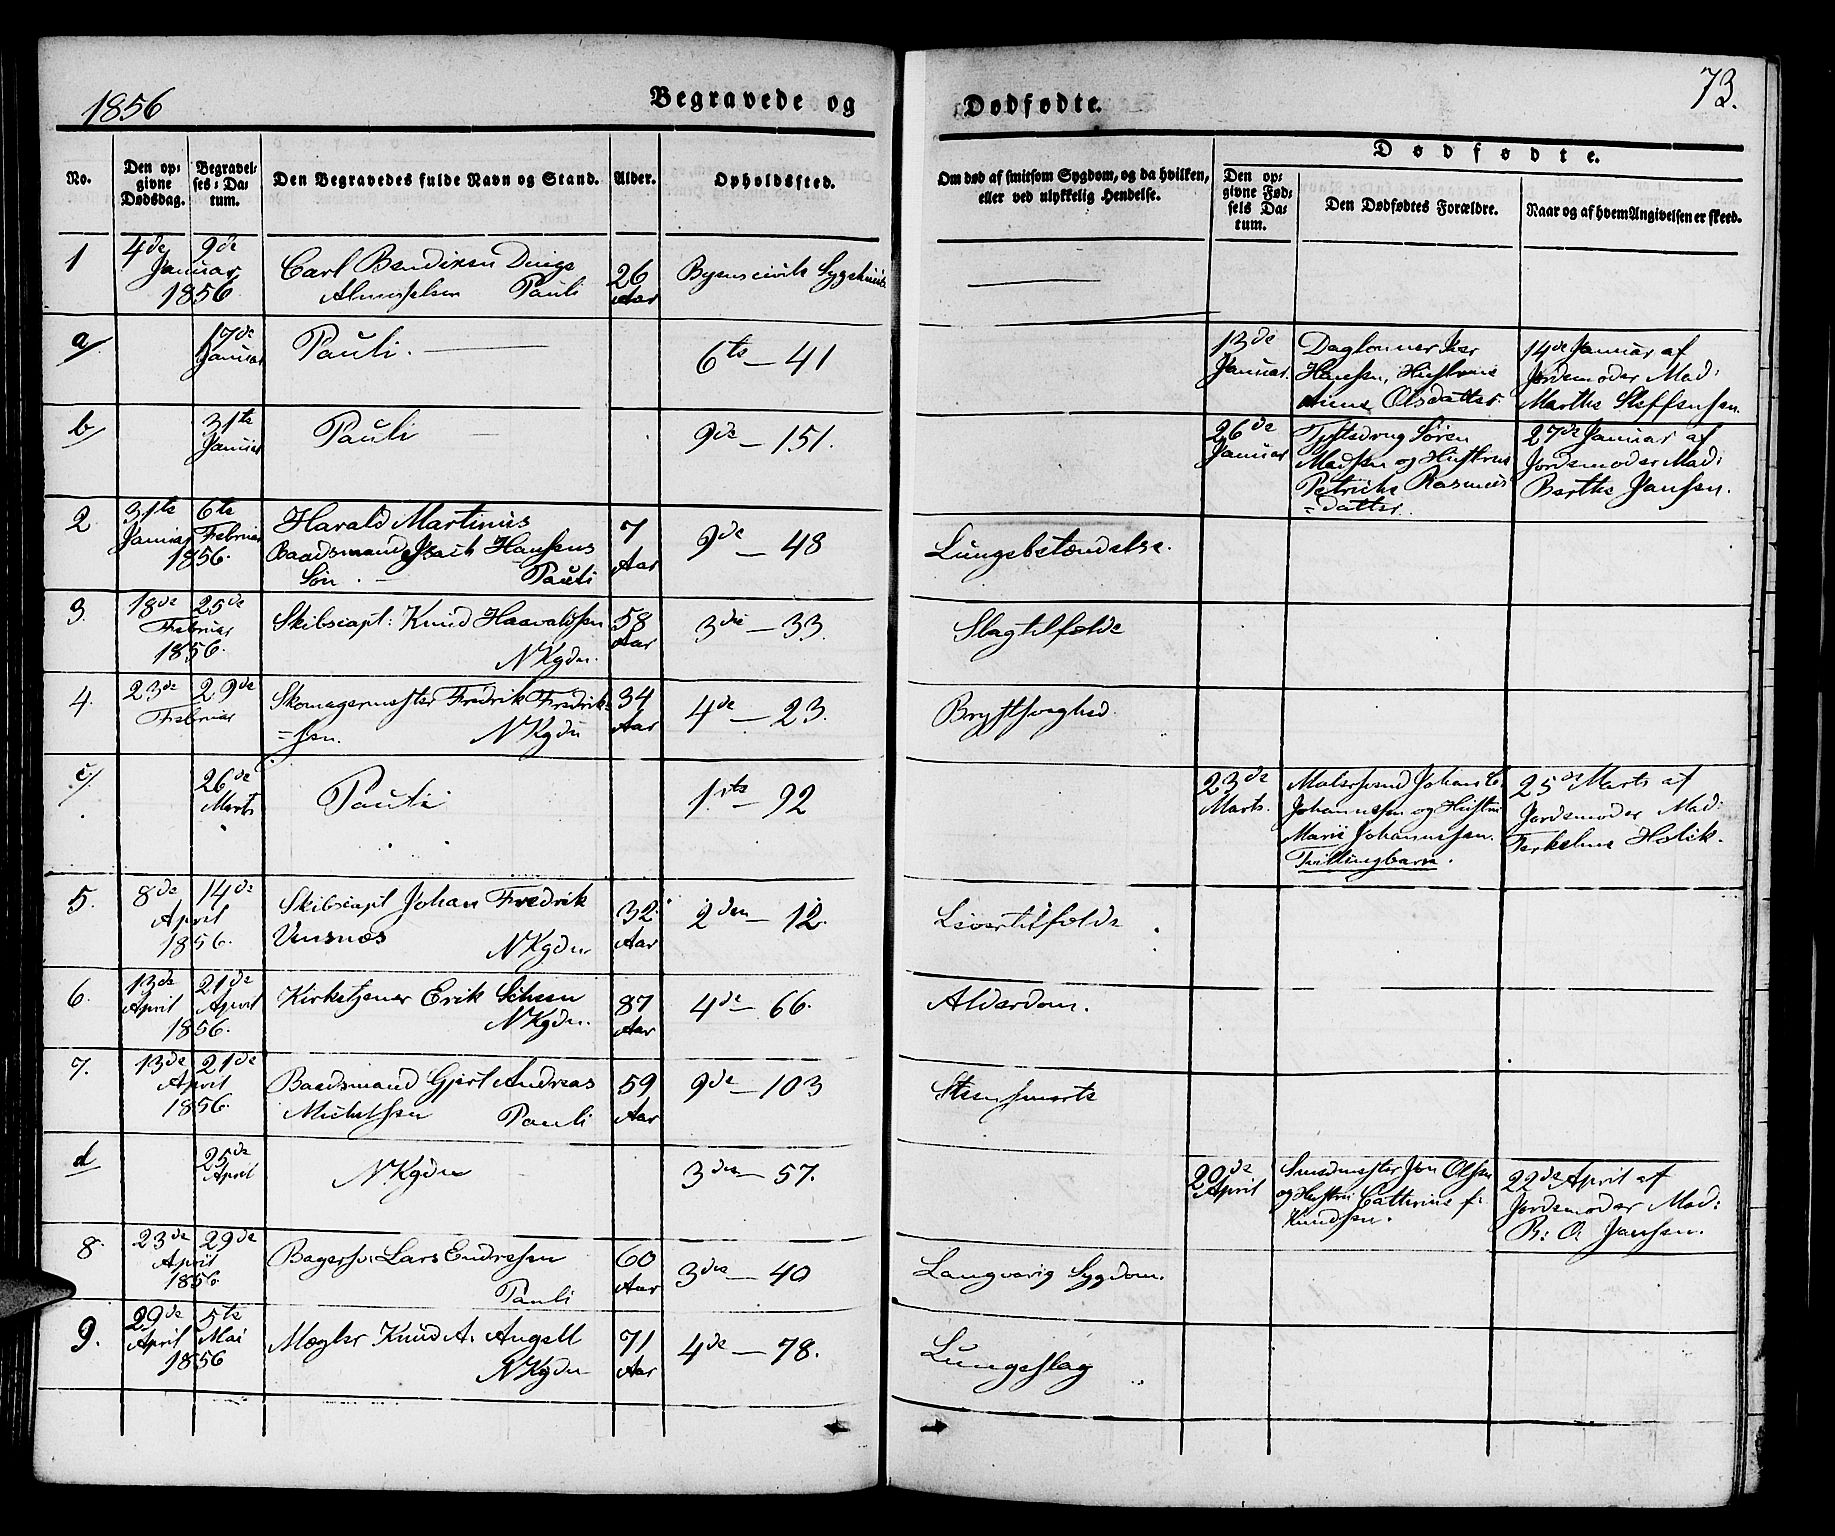 1856
Begravede og
Dødfødte.
73.
No.
Den op-
givne
Dødsdag.
Begravel-
ses-Da-
tum.
Den Begravedes fulde Navn og Stand.
Alder.
Opholdssted.
Om død af smitsom Sygdom, og da hvilken,
eller ved ulykkelig Hendelse.
Dødfødte.
Den op-
givne Fød-
sels Da-
tum.
Den Dødfødtes Forældre.
Naar og af hvem Angivelsen er skeed.
1
4de 9de
Januar
1856
Carl Bendixen
Pauli
26
Aar
Byens civile Sygehuus
a/
17de
Januar
Pauli.
6te - 41
13de
Januar.
Daglonner
Hansen, Hustrue
Olsdatter
14de Januar af
Jordemoder Mad:
Marthe Steffensen
b/
31te
Januar
Pauli
9de - 151.
26de
Januar
Søren
Madsen og Hustrue
Petriche Rasmus
=datter.
27de Januar af
Jordemoder Mad:
Berthe Jansen.
2
31te 6te
Januar Februar
1856.
Harald Martinus
Baadsmand Isach Hansens
Søn. Pauli
7
Aar
9de - 48
Lungebetændelse.
3.
18de 25de
Februar
1856.
Skibscapt: Knud Haavaldsen
NKgdn.
58
Aar
3die - 33
Slagtilfælde
4.
23de 29de
Februar
Skomagermester Fredrik Fredrik-
=sen. NKgdn
34
Aar
4de - 23.
Brystsvaghed.
c/
26de
Marts
Pauli
1ste - 92
23de
Marts.
Malersvend Johan C.
Johannessen og Hustrue
Marie Johannessen.
Tvillingbarn.
25de Marts af
Jordemoder Mad:
Terkeline Holck.
5.
8de 14de
April
1856.
Skibscapt Johan Fredrik
Vensnæs NKgdn.
32
Aar
2den - 12.
Levertilfælde
6.
13de 21de
April April
1856.
Kirketjener Erik Scheen
NKgdn.
87
Aar
4de - 66.
Alderdom.
7.
13de 21de
April
1856.
Baadsmand Gjert Andreas
Michelsen Pauli
59
Aar
9de - 103
Steensmerte
d
25de
April
NKgdn
3die - 57.
20de
April
Smedmester Jon Olsen
og Hustru Cathrine f:
Knudsen.
22de April af
Jordemoder Mad:
B: O. Jansen.
8.
23de 29de
April
1856.
Bagersv: Lars Endresen
Pauli
60
Aar
3die - 40
Langvarig Sygdom.
9.
29de 5te
April Mai
1856
Mægler Knud A. Angell
NKgdn
71
Aar
4de - 78.
Lungeslag